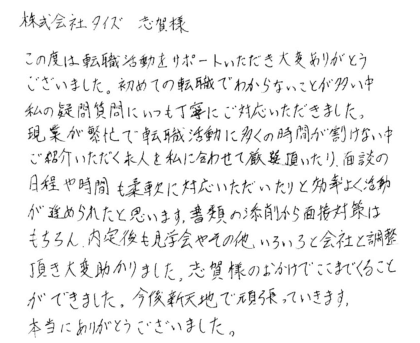 株式会社タイズ 志賀様
この度は転職活動をサポートいただき大変ありがとう
ございました。初めての転職でわからないことが多い中
私の疑問質問にいつも丁寧にご対応いただきました。
現業が繁忙で転職活動に多くの時間が割けない中
ご紹介いただく求人を私に合わせて厳選頂いたり、面談の
日程や時間も柔軟に対応いただいたりと効率よく活動
が進められたと思います。書類の添削から面接対策は
もちろん、内定後も見学会やその他いろいろと会社と調整
頂き大変助かりました。志賀様のおかげでここまでくること
ができました。今後新天地で頑張っていきます。
本当にありがとうございました。